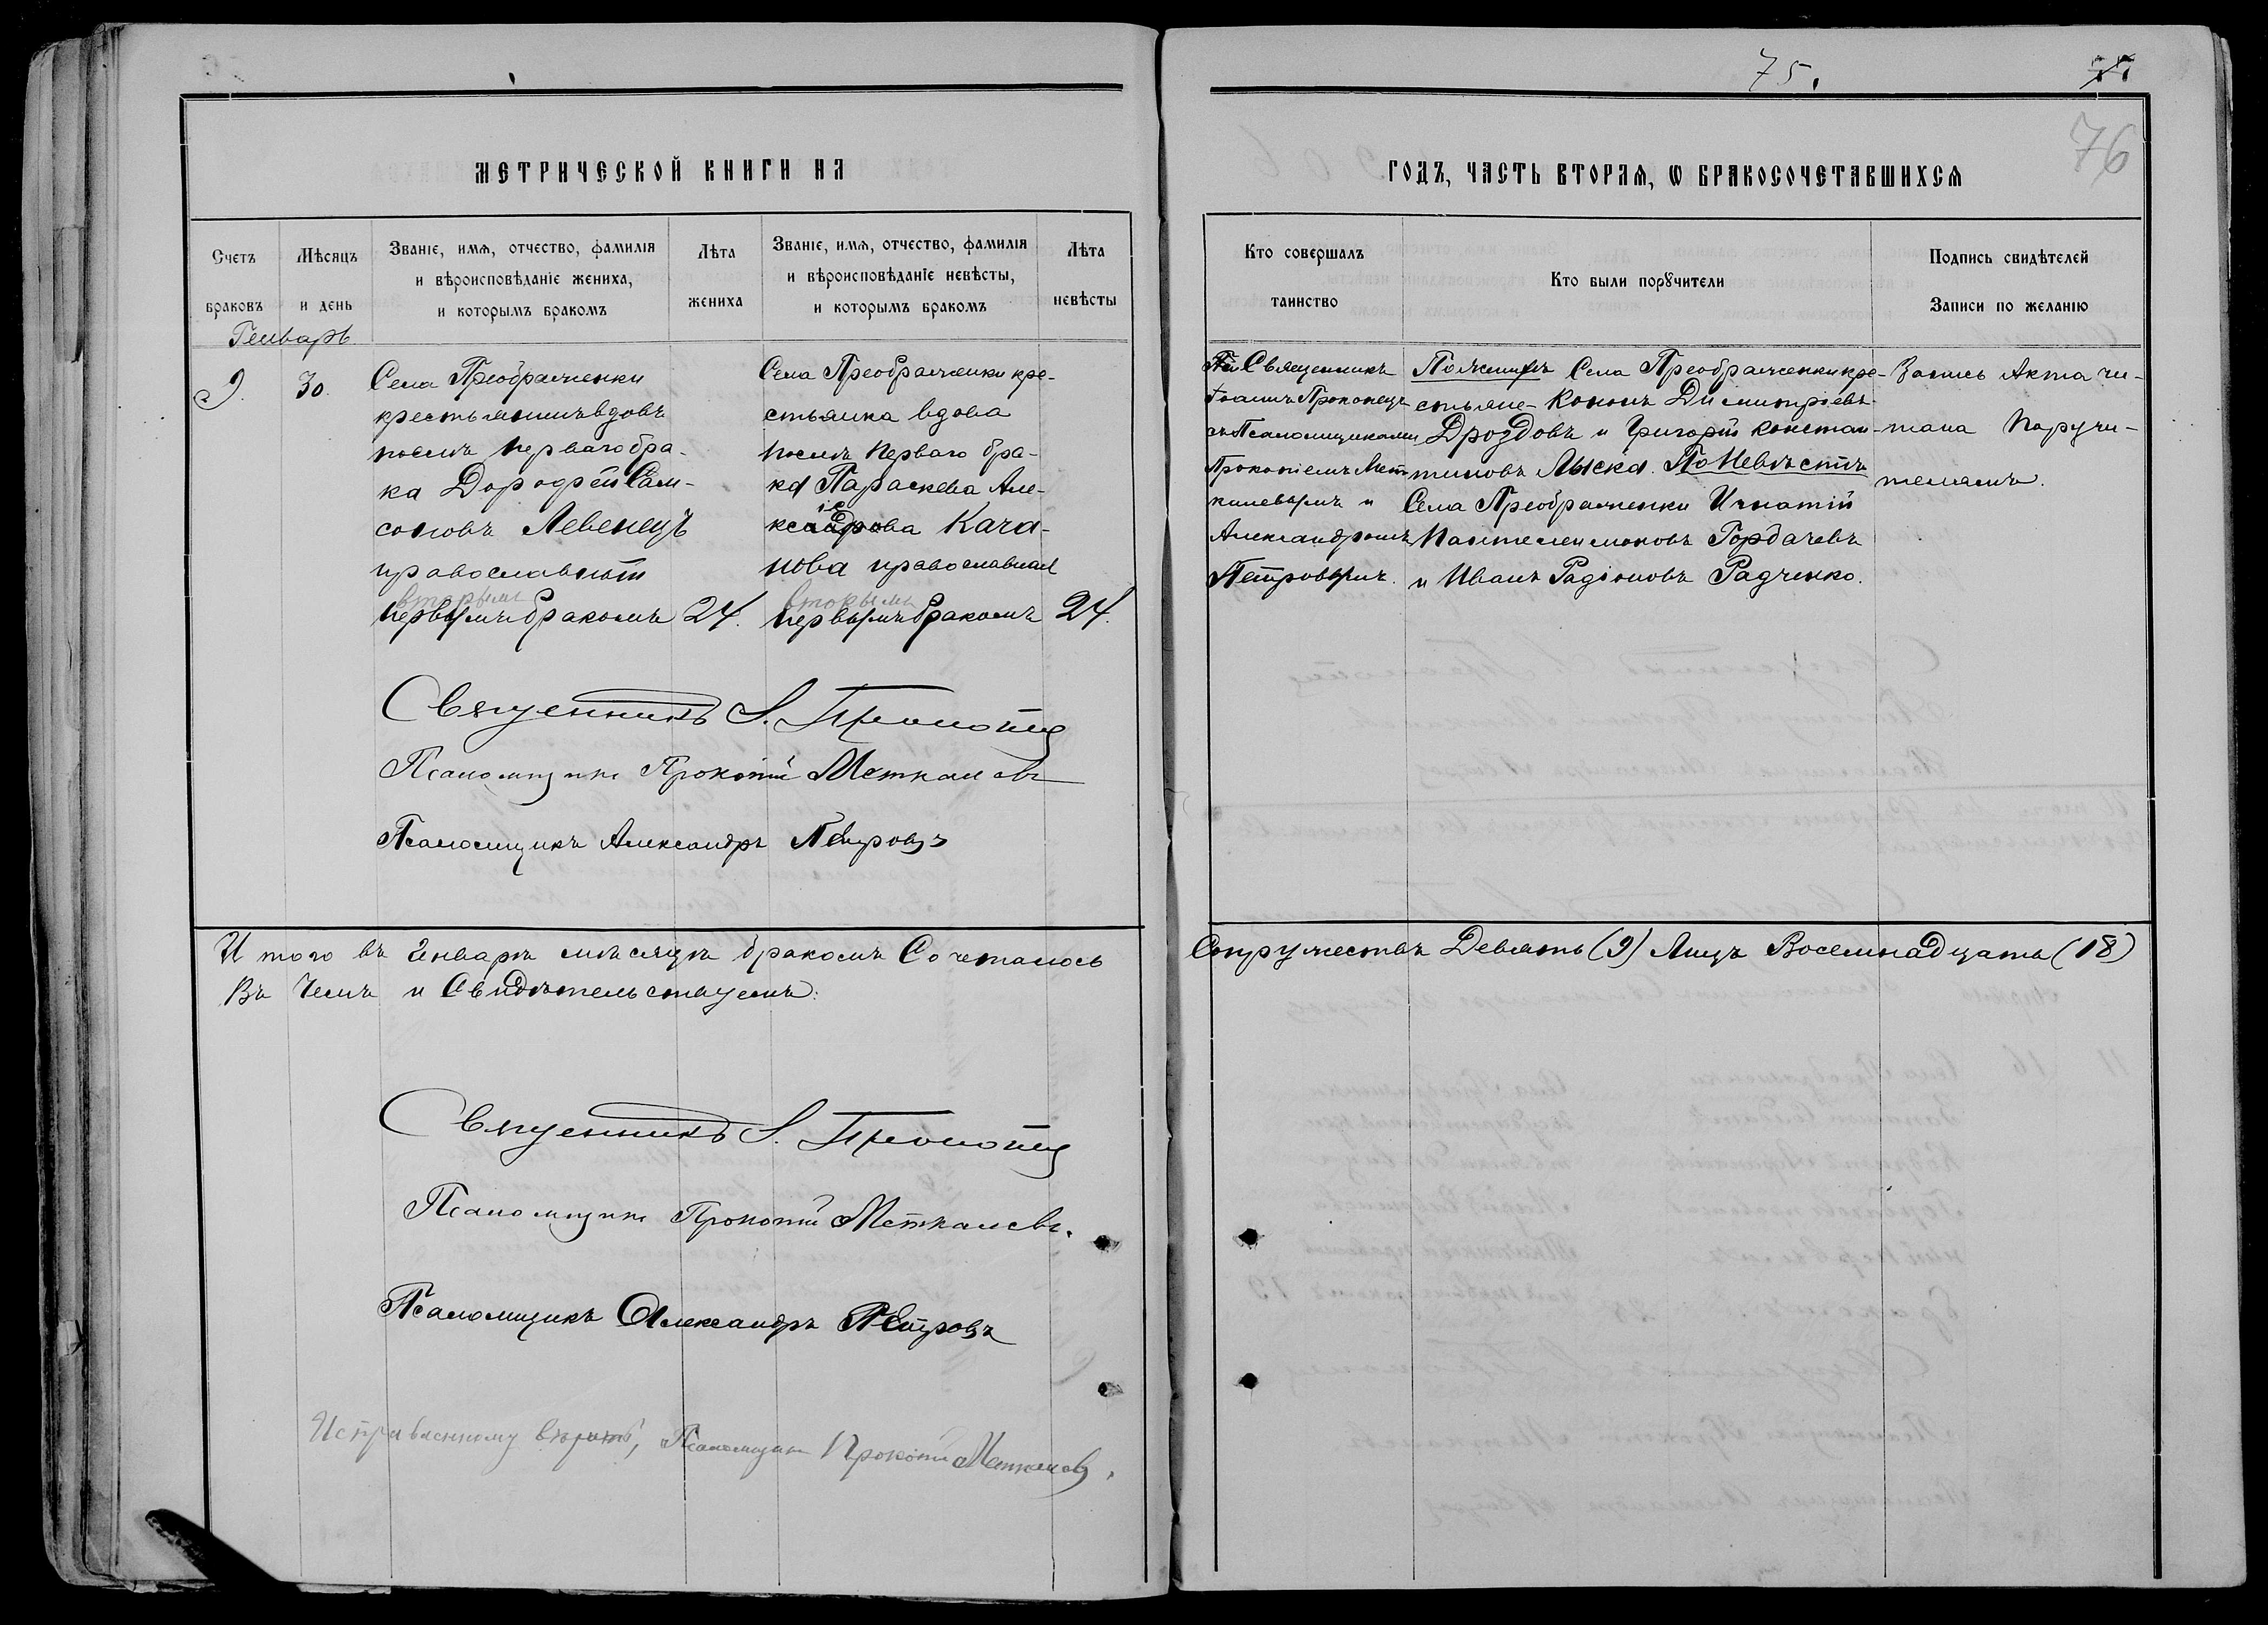 75.
77
76
МЕТРИЧЕСКОЙ КНИГИ НА
ГОДЪ, ЧАСТЬ ВТОРАЯ, Ѡ БРАКОСОЧЕТАВШИХСЯ
Счетъ браковъ
Мѣсяцъ и день
Званіе, имя, отчество, фамилія
и вѣроисповѣданіе жениха,
и которымъ бракомъ
Лѣта жениха
Званіе, имя, отчество, фамилія
и вѣроисповѣданіе невѣсты,
и которымъ бракомъ
Лѣта невѣсты
Кто совершалъ таинство
Кто были порꙋчители
Подпись свидѣтелей
Записи по желанію
Генварь
9.
30.
Села Преображенки
крестьянинъ вдовъ
послѣ перваго бра-
ка Дорофей Сам-
соновъ Левенецъ
православный
вторымъ
первымъ бракомъ
24.
Села Преображенки кре-
стьянка вдова
послѣ перваго бра-
ка Параскева Але-
ксандрова Кача-
нова православная
вторымъ
первымъ бракомъ
24.
Священникъ
Іоаннъ Прокопецъ
съ Псаломщиками
Прокопіемъ Мет-
калевымъ и
Александромъ
Петровымъ.
По женихѣ Села Преображенки кре-
стьяне Кононъ Димитріевъ
Дроздовъ и Григорій Констан-
тиновъ Лыска. По Невѣстѣ
Села Преображенки Игнатій
Пантелеимоновъ Гордачевъ
и Иванъ Радіоновъ Радченко.
Запись Акта чи-
тана Поручи-
телямъ.
Священникъ І. Прокопецъ
Псаломщикъ Прокопій Меткалевъ
Псаломщикъ Александръ Петровъ
Итого въ Январѣ мѣсяцѣ бракомъ Сочеталось Супружествъ Девять (9) Лицъ Восемнадцать (18)
Въ Чемъ и Свидѣтельствуемъ:
Священникъ І. Прокопецъ
Псаломщикъ Прокопій Меткалевъ.
Псаломщикъ Александръ Петровъ
Исправленному вѣрить, Псаломщикъ Прокопій Меткалевъ.